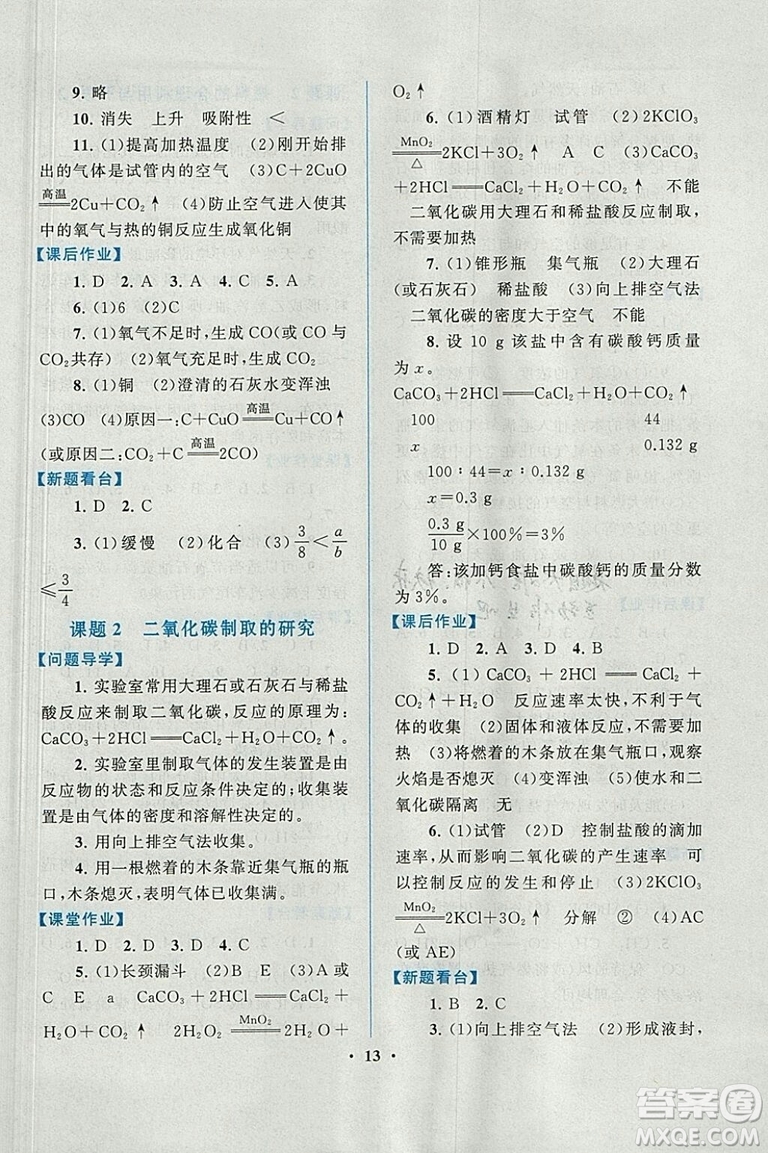 9. 略
10. 消失 上升 吸附性 <
11. (1)提高加热温度 (2)刚开始排
出的气体是试管内的空气 (3)C＋2CuO
高温
══2Cu＋CO₂↑ (4)防止空气进入使其
中的氧气与热的铜反应生成氧化铜
【课后作业】
1. D 2. A 3. A 4. C 5. A
6. (1)6 (2)C
7. (1)氧气不足时,生成 CO(或 CO 与
CO₂共存) (2)氧气充足时,生成 CO₂
8. (1)铜 (2)澄清的石灰水变浑浊
(3)CO (4)原因一:C＋CuO══高温══Cu＋CO↑
(或原因二:CO₂＋C══高温══2CO)
【新题看台】
1. D 2. C
3. (1)缓慢 (2)化合 (3)3/8＜a/b
≤3/4
课题 2 二氧化碳制取的研究
【问题导学】
1. 实验室常用大理石或石灰石与稀盐
酸反应来制取二氧化碳,反应的原理为:
CaCO₃＋2HCl══CaCl₂＋H₂O＋CO₂↑。
2. 实验室里制取气体的发生装置是由
反应物的状态和反应条件决定的;收集装
置是由气体的密度和溶解性决定的。
3. 用向上排空气法收集。
4. 用一根燃着的木条靠近集气瓶的瓶
口,木条熄灭,表明二氧化碳已收集满。
【课堂作业】
1. D 2. D 3. D 4. D
5. (1)长颈漏斗 (2)B E (3)A 或
C E a CaCO₃＋2HCl══CaCl₂＋
H₂O＋CO₂↑ 2H₂O₂══MnO₂══2H₂O＋
O₂↑
6. (1)酒精灯 试管 (2)2KClO₃
══MnO₂/△══2KCl＋3O₂↑ A C (3)CaCO₃
＋2HCl══CaCl₂＋H₂O＋CO₂↑ 不能
二氧化碳用大理石和稀盐酸反应制取,
不需要加热
7. (1)锥形瓶 集气瓶 (2)大理石
(或石灰石) 稀盐酸 (3)向上排空气法
二氧化碳的密度大于空气 不能
8. 设 10 g 该盐中含有碳酸钙质量
为 x。
CaCO₃＋2HCl══CaCl₂＋H₂O＋CO₂↑
100 44
x 0.132 g
100∶44＝x∶0.132 g
x＝0.3 g
0.3 g/10 g×100%＝3%
答:该加钙食盐中碳酸钙的质量分数
为 3%。
【课后作业】
1. D 2. D 3. D 4. B
5. (1)CaCO₃＋2HCl══CaCl₂＋
CO₂↑＋H₂O 反应速率太快,不利于气
体的收集 (2)固体和液体反应,不需要加
热 (3)将燃着的木条放在集气瓶口,观察
火焰是否熄灭 (4)变浑浊 (5)使水和二
氧化碳隔离 无
6. (1)试管 (2)D 控制盐酸的滴加
速率,从而影响二氧化碳的产生速率 可
以控制反应的发生和停止 (3)2KClO₃
══MnO₂/△══2KCl＋3O₂↑ 分解 ② (4)AC
(或 AE)
【新题看台】
1. B 2. C
3. (1)向上排空气法 (2)形成液封,
• 13 •
答案圈
MXQE.COM